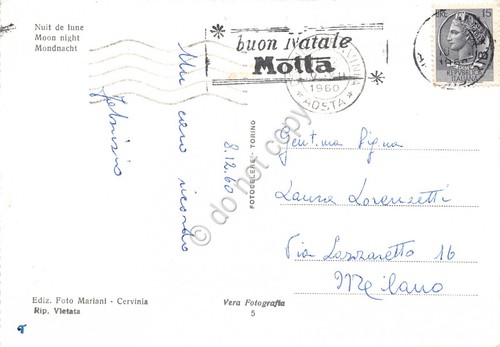 Nuit de lune
Moon night
Mondnacht
buon Natale
Motta
CERVINIA
1960
AOSTA
LIRE 15
1960
Un caro ricordo
Fabrizio
8.12.60
FOTOCELERE - TORINO
Gent.ma Sig.na
Laura Lorenzetti
Via Lazzaretto 16
Milano
Ediz. Foto Mariani - Cervinia
Rip. Vietata
Vera Fotografia
5
do not copy